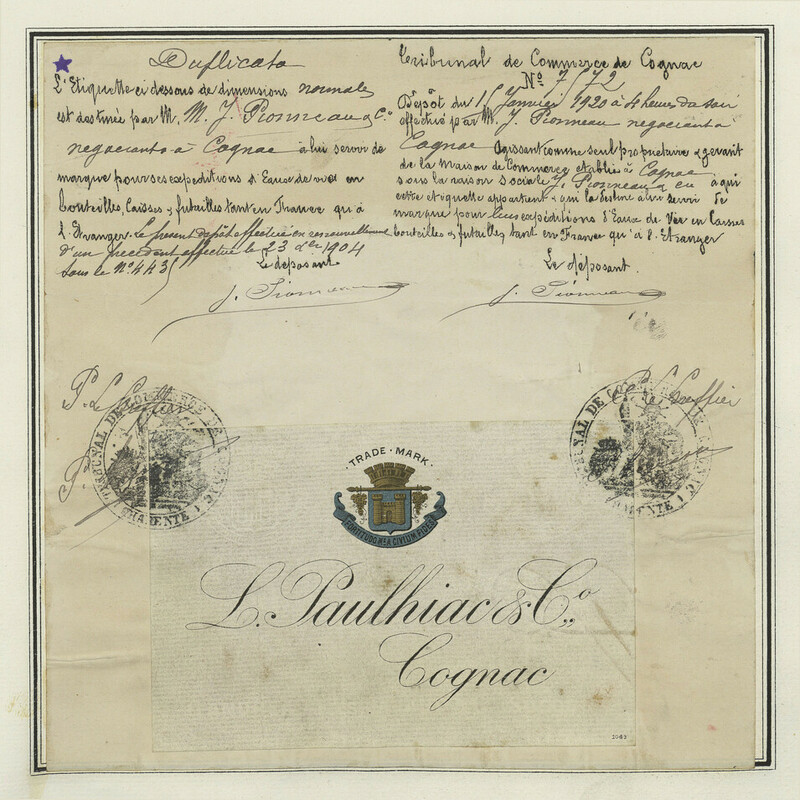 Duplicata
L'Etiquette ci dessous de dimensions normales
est destinée par M. M. J. Pionneau & Co.
negociants à Cognac à lui servir de
marque pour ses expeditions d'Eaux de vie en
bouteilles, Caisses & futailles tant en France qu'à
l'Etranger. Le present dépôt effectué en renouvellement
d'un précédent effectué le 23 1904
sous le No 443
Le déposant
J. Pionneau
Tribunal de Commerce de Cognac
No 7/72
Dépôt du Janvier 1920 à 4 heures du soir
effectué par M. J. Pionneau negociant à
Cognac agissant comme seul propriétaire & gerant
de la Maison de Commerce etablie à Cognac
sous la raison sociale J. Pionneau & à qui
cette etiquette appartient & qui la destine à lui servir de
marque pour leurs expéditions d'Eaux de Vie en Caisses
bouteilles & futailles tant en France qu'à l'Etranger
Le déposant
J. Pionneau
P. Le Greffier
TRIBUNAL DE COMMERCE DE
CHARENTE
P. Le Greffier
TRIBUNAL DE
CHARENTE
· TRADE · MARK ·
FORTITUDO MEA CIVIUM FIDES
L. Paulhiac & Co.,
Cognac